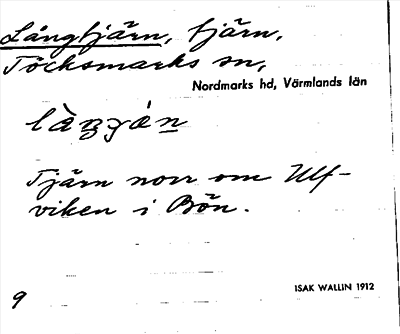 Långtjärn, tjärn,
Töcksmarks sn,
Nordmarks hd, Värmlands län
Tjärn norr om Ulf-
viken i Bön.
ISAK WALLIN 1912
9